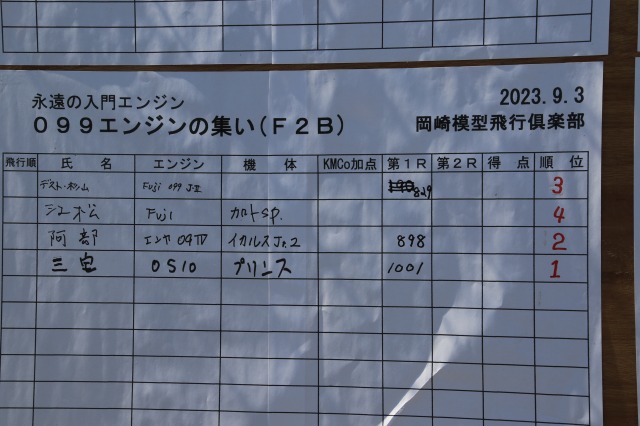 永遠の入門エンジン 2023.9.3
099エンジンの集い(F2B) 岡崎模型飛行倶楽部
飛行順 氏名 エンジン 機体 KMCo加点 第1R 第2R 得点 順位
Fuji 099 829 3
江松 Fuji カルトSP. 4
阿部 エンヤ 09 イカルスJr.2 898 2
三宅 OS10 プリンス 1001 1